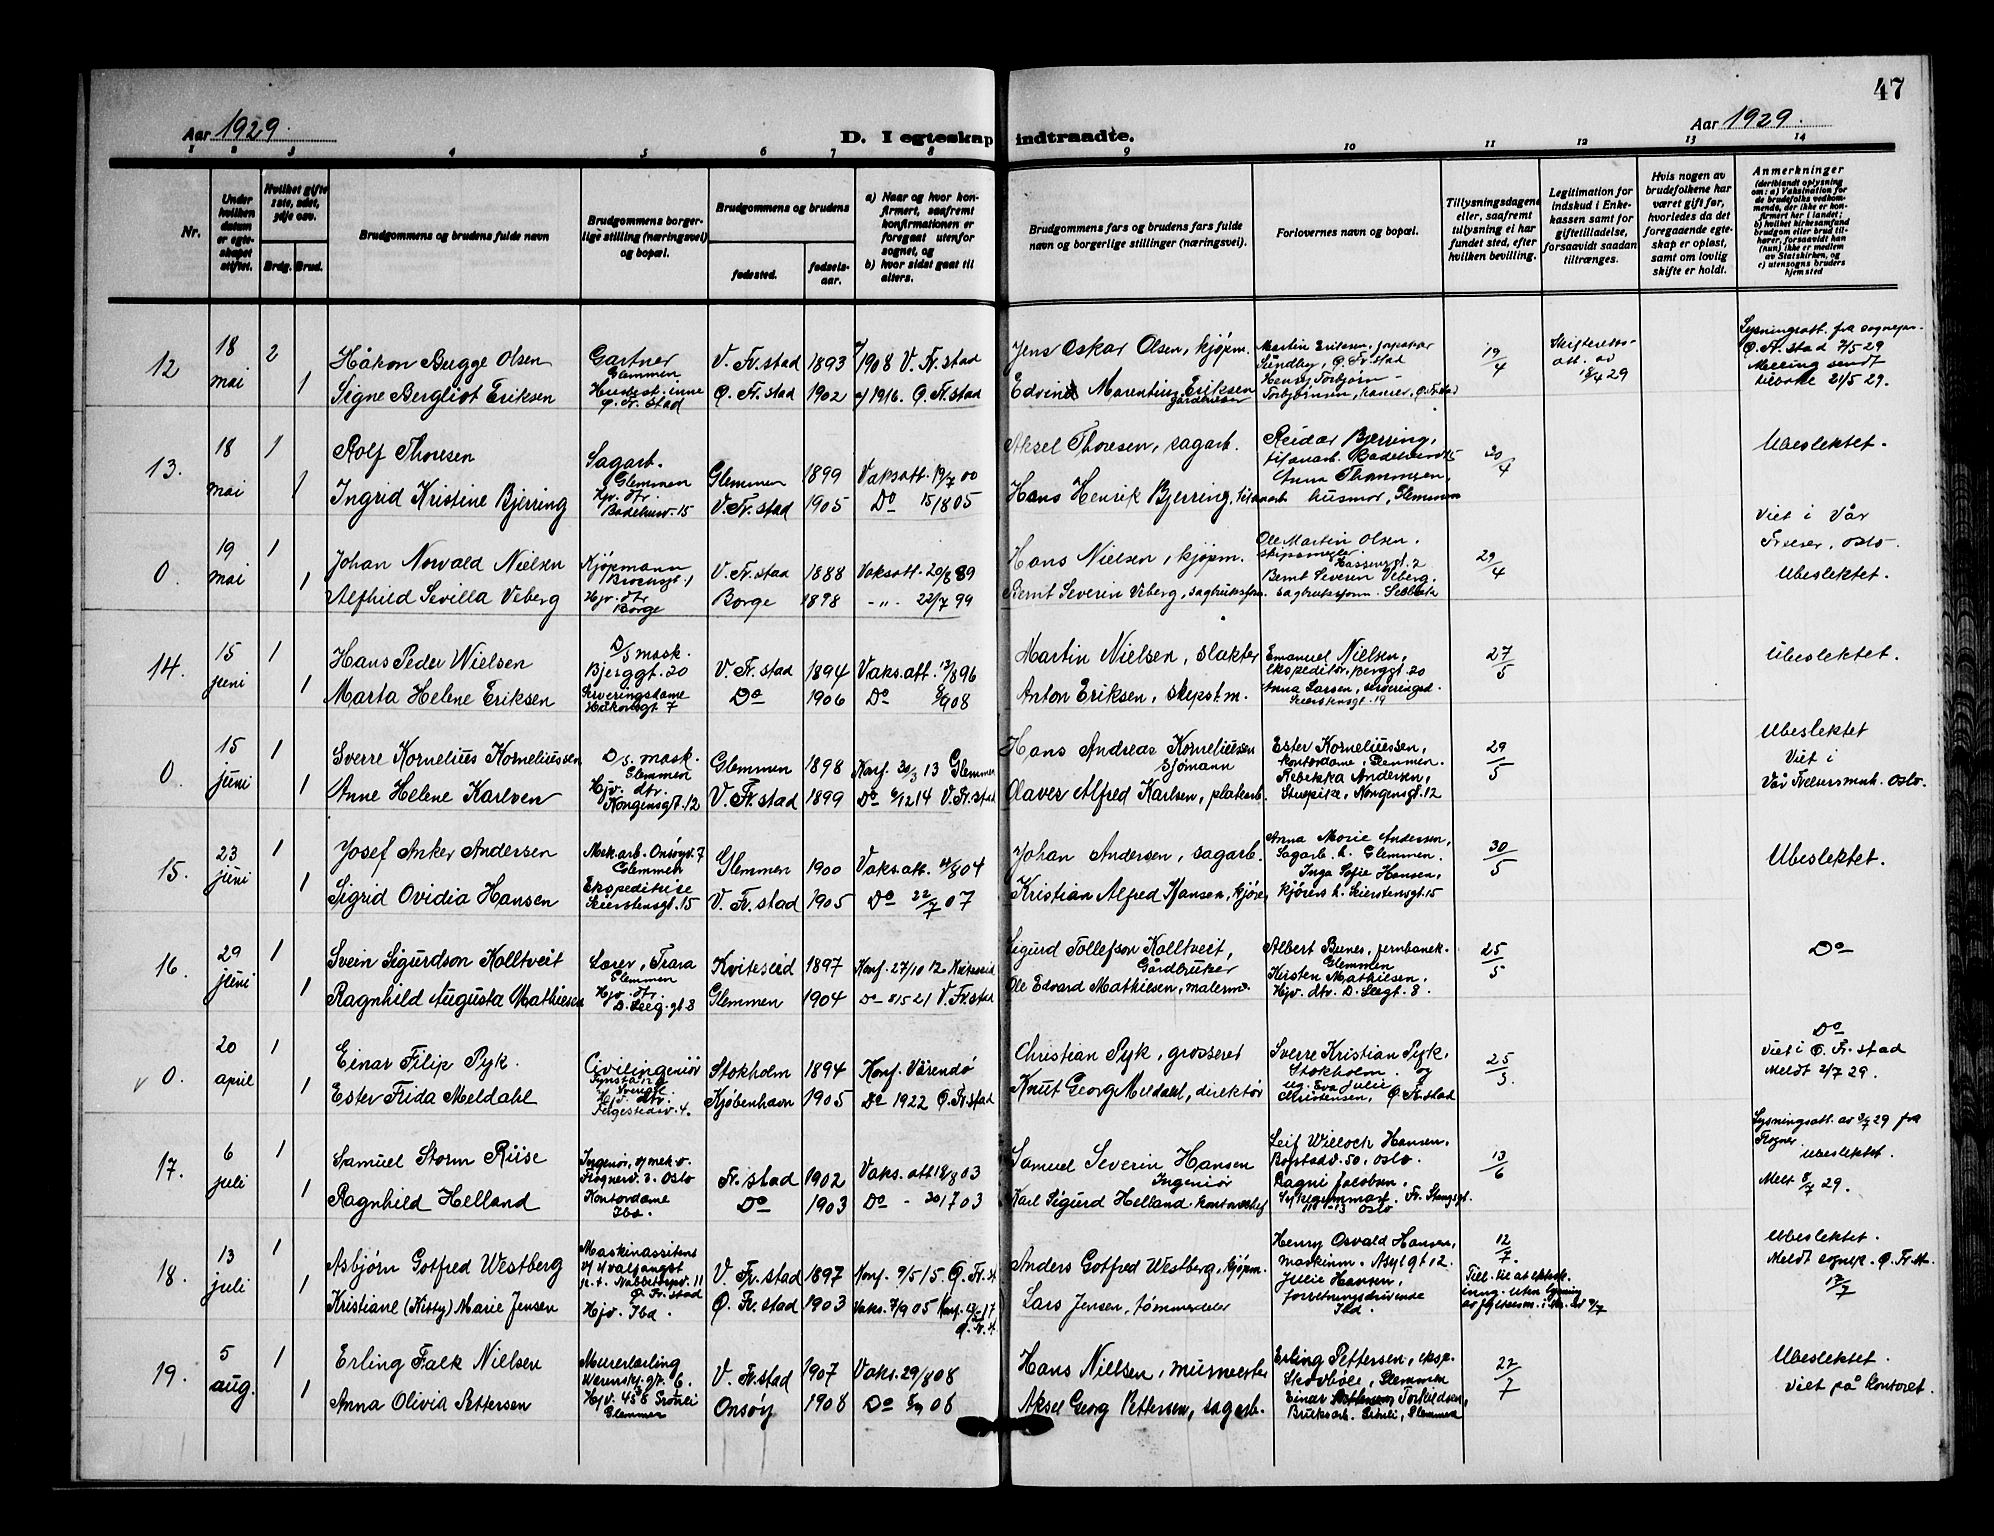 47
Aar 1929.
D. I egteskap indtraadte.
Aar 1929.
1 2 3 4 5 6 7 8 9 10 11 12 13 14
Nr.
Under hvilken datum er egteskapet stiftet.
Hvilket gifte 1ste, 2det, 3dje osv.
Brdg. Brud.
Brudgommens og brudens fulde navn
Brudgommens borgerlige stilling (næringsvei) og bopæl.
Brudgommens og brudens
fødested.
fødselsaar.
a) Naar og hvor konfirmert, saafremt konfirmationen er foregaat utenfor sognet, og
b) hvor sidst gaat til alters.
Brudgommens fars og brudens fars fulde navn og borgerlige stillinger (næringsvei).
Forlovernes navn og bopæl.
Tillysningsdagene eller, saafremt tillysning ei har fundet sted, efter hvilken bevilling.
Legitimation for indskud i Enkekassen samt for giftetilladelse, forsaavidt saadan tiltrænges.
Hvis nogen av brudefolkene har været gift før, hvorledes da det foregaaende egteskap er opløst, samt om lovlig skifte er holdt.
Anmerkninger
(deriblandt oplysning om: a) Vaksination for de brudefolks vedkommende, der ikke er konfirmert her i landet; b) hvilket kirkesamfund brudgom eller brud tilhører, forsaavidt han (hun) ikke er medlem av Statskirken, og c) utensogns bruders hjemsted
12
18 mai
2
1
Håkon Bugge Olsen
Signe Bergliot Eriksen
Gartner
Glemmen
Ø. Fr. stad
V. Fr. stad 1893
1908 V. Fr. stad
Ø. Fr. stad 1902
1916. Ø. Fr. stad
Jens Oskar Olsen, kjøpm.
Edvind Marentius Eriksen
Martin Eriksen,
Sundløy, Ø. Fr. stad
Henry Torbjørn
Torbjørnsen,
19/4
Skifteretts-
att. av
18/4 29
Lysningsatt. fra sognepr.
Ø. Fr. stad 7/5 29
Melding sendt
tilbake 21/5 29.
13.
18 mai
1
1
Rolf Thoresen
Ingrid Kristine Bjerring
Sagarb.
Glemmen
Hjv. dtr.
15
Glemmen 1899
Vaksatt. 19/7 00
V. Fr. stad 1905
Do 15/8 05
Aksel Thoresen, sagarb.
Hans Henrik Bjerring,
Reidar Bjerring,
Anna Thoresen,
husmor, Glemmen
20/4
Ubeslektet.
0.
19 mai
1
1
Johan Norvald Nielsen
Alfhild Sevilla Veberg
Kjøpmann
Hjv. dtr
Borge
V. Fr. stad 1888
Vaksatt. 20/8 89
Borge 1898
-"- 22/7 99
Hans Nielsen, kjøpm.
Bernt Severin Veberg, sagbruksform.
Ole Martin Olsen,
skipsmegler.
Bernt Severin Veberg.
sagbruksform.
29/4
Viet i Vår
Frelser, Oslo.
Ubeslektet.
14.
15 juni
1
1
Hans Peder Nielsen
Marta Helene Eriksen
D/S mask.
Bjerggt. 20
Serveringsdame
Håkonsgt 7
V. Fr. stad 1894
Vaks. att. 13/8 96
Do 1906
Do 6/9 08
Martin Nielsen, slakter
Anton Eriksen, skepstm.
Emanuel Nielsen,
ekspeditør, Berggt 20
Anna Larsen, serveringsd.
27/5
Ubeslektet.
0
15 juni
1
1
Sverre Kornelius Korneliussen
Anne Helene Karlsen
D/s. mask.
Glemmen
Hjv. dtr.
Kongensgt. 12
Glemmen 1898
Konf. 30/3 13 Glemmen
V. Fr. stad 1899
Do 6/12 14 V. Fr. stad
Hans Andreas Korneliussen
Sjømann
Olaves Alfred Karlsen, platearb.
Ester Korneliussen,
kontordame, Glemmen.
Rebekka Andersen,
Stuepike, Kongensgt. 12
29/5
Ubeslektet
Viet i
Vår Frelsers menh. Oslo.
15.
23 juni
1
1
Josef Anker Andersen
Sigrid Ovidia Hansen
Mek. arb. Onsøyv. 7
Glemmen
Ekspeditrise
Skierstensgt. 15
Glemmen 1900
Vaks. att. 4/8 04
V. Fr. stad 1905
Do 22/7 07
Johan Andersen, sagarb.
Kristian Alfred Hansen, kjører
Anna Marie Andersen,
Sagarb. h. Glemmen.
Inga Sofie Hansen,
kjørers h. Skierstensgt. 15
30/5
Ubeslektet.
16.
29 juni
1
1
Svein Sigurdson Kolltveit
Ragnhild Augusta Mathiesen
Lærer, Trara
Glemmen
Hjv. dtr.
D. Leeg. gt 8
Kviteseid 1897
Konf. 27/10 12 Kviteseid
Glemmen 1904
Do 8/5 21 V. Fr. stad
Sigurd Tollefson Kolltveit,
Gårdbruker
Ole Edvard Mathiesen, malerm.
Albert Bunes, jernbanek.
Glemmen
Kirsten Mathiesen,
Hjv. dtr. D. Leegt. 8.
25/5
Do
0.
20 april
1
1
Einar Filip Pyk.
Ester Frida Meldahl
Civilingeniør
Hjv. dtr.
Stokholm 1894
Konf. Värendö
Kjöbenhavn 1905
Do 1922 Ø. Fr. stad
Christian Pyk, grosserer
Knut Georg Meldahl, direktør
Sverre Kristian Pyk,
Stokholm. og
Eva Julie
Christensen, Ø. Fr. stad
25/3.
Do
Viet i Ø. Fr. stad
Meldt 2/7 29.
17.
6 juli
1
1
Samuel Storm Riise
Ragnhild Helland
Frognerv. 3. Oslo
Kontordame
Ibd.
Fr. stad 1902
Vaks. att 18/8 03
Do 1903
Do - 20/7 03
Samuel Severin Hansen
Ingeniør
Karl Sigurd Helland. kontorchef
Leif Willoch Hansen.
50, Oslo.
Ragni Jacobsen.
Fr. Stangsgt.
11-13 Oslo
13/6
Lysningsatt. av 3/7 29 fra
Frogner
Ubeslektet.
Melt 8/7 29.
18.
13 juli
1
1
Asbjørn Gotfred Westberg
Kristiane (Kisty) Marie Jensen
Maskinassistent
v/ hvalfangst
11
Ø. Fr. stad
Hjv. Ibd.
V. Fr. stad 1897
Konf. 9/5 15. Ø. Fr. st
Ø. Fr. stad 1903
Vaks. 7/9 05 Konf. 17
Ø. Fr. st.
Anders Gotfred Westberg, kjøpm.
Lars Jensen, tømmerdeler
Henry Osvald Hansen,
maskinm. Asylgt 12.
Julie Hansen,
forretningsdrivende
Ibd.
12/7.
Till. til at ekteskap
inng. uten lysning
av fylkesm. i
Ubeslektet.
Meldt sognepr. Ø. Fr. st.
17/7
19.
5 aug.
1
1
Erling Falk Nielsen
Anna Olivia Pettersen
Murerlærling
6.
Hjv.
Glemmen
V. Fr. stad 1907
Vaks. 29/8 08
Onsøy 1908
Do 8/9 08
Hans Nielsen, murmester
Aksel Georg Pettersen, sagarb.
Erling Pettersen, eksp.
Glemmen
Einar Torkildsen,
Bruksarb. Glemmen
22/7
Ubeslektet.
Viet på kontoret.